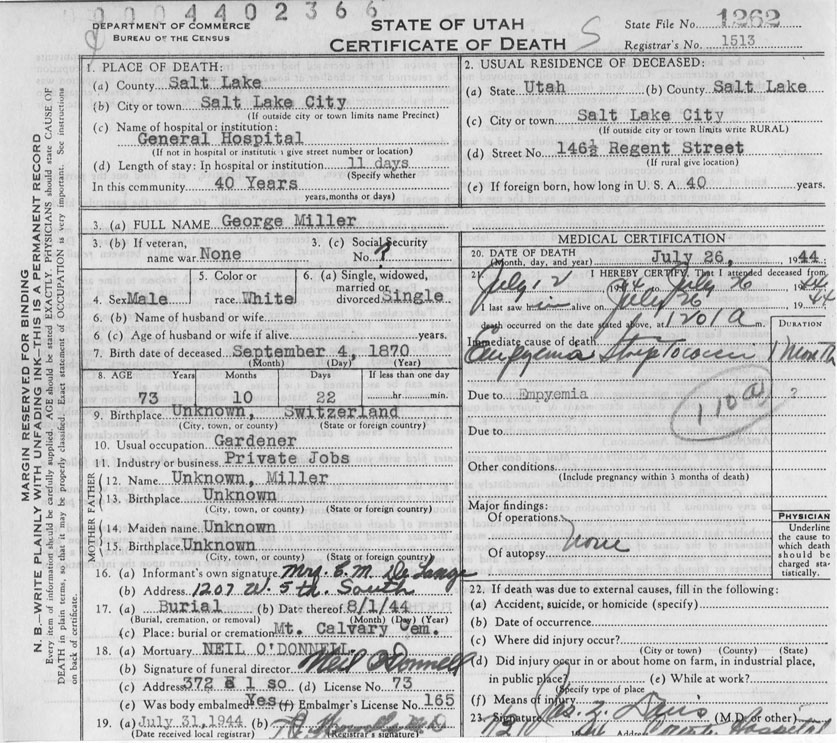 0004402366
DEPARTMENT OF COMMERCE
BUREAU OF THE CENSUS
STATE OF UTAH
CERTIFICATE OF DEATH
S
State File No. 1262
Registrar's No. 1513
MARGIN RESERVED FOR BINDING
N. B.—WRITE PLAINLY WITH UNFADING INK—THIS IS A PERMANENT RECORD
Every item of information should be carefully supplied. AGE should be stated EXACTLY. PHYSICIANS should state CAUSE OF
DEATH in plain terms, so that it may be properly classified. Exact statement of OCCUPATION is very important. See instructions
on back of certificate.
1. PLACE OF DEATH:
(a) County Salt Lake
(b) City or town Salt Lake City
(If outside city or town limits name Precinct)
(c) Name of hospital or institution:
General Hospital
(If not in hospital or institution give street number or location)
(d) Length of stay: In hospital or institution 11 days
(Specify whether
In this community 40 Years
years, months or days)
2. USUAL RESIDENCE OF DECEASED:
(a) State Utah (b) County Salt Lake
(c) City or town Salt Lake City
(If outside city or town limits write RURAL)
(d) Street No. 146½ Regent Street
(If rural give location)
(e) If foreign born, how long in U. S. A. 40 years.
3. (a) FULL NAME George Miller
3. (b) If veteran,
name war None
3. (c) Social Security
No. ?
4. Sex Male
5. Color or
race White
6. (a) Single, widowed,
married or
divorced Single
6. (b) Name of husband or wife
6. (c) Age of husband or wife if alive years.
7. Birth date of deceased September 4, 1870
(Month) (Day) (Year)
8. AGE Years Months Days If less than one day
73 10 22 hr. min.
9. Birthplace Unknown, Switzerland
(City, town, or county) (State or foreign country)
10. Usual occupation Gardener
11. Industry or business Private Jobs
FATHER
12. Name Unknown, Miller
13. Birthplace Unknown
(City, town, or county) (State or foreign country)
MOTHER
14. Maiden name Unknown
15. Birthplace Unknown
(City, town, or county) (State or foreign country)
16. (a) Informant's own signature Mrs. E. M. De Lange
(b) Address 1207 W. 5 th. South
17. (a) Burial (b) Date thereof 8/1/44
(Burial, cremation, or removal) (Month) (Day) (Year)
(c) Place: burial or cremation Mt. Calvary Cem.
18. (a) Mortuary NEIL O'DONNELL
(b) Signature of funeral director Neil O'Donnell
(c) Address 372 E 1 so (d) License No. 73
(e) Was body embalmed Yes (f) Embalmer's License No. 165
19. (a) July 31, 1944 (b)
(Date received local registrar) (Registrar's signature)
MEDICAL CERTIFICATION
20. DATE OF DEATH
(Month, day, and year) July 26, 1944
I HEREBY CERTIFY, That I attended deceased from
July 12 1944 July 26 1944
I last saw him alive on July 26 1944
death occurred on the date stated above, at 1201 A m.
DURATION
Immediate cause of death
Empyema Streptococci 1 Month
Due to Empyemia ?
110a
Due to
Other conditions
(Include pregnancy within 3 months of death)
Major findings:
Of operations
Of autopsy None
PHYSICIAN
Underline
the cause to
which death
should be
charged sta-
tistically.
22. If death was due to external causes, fill in the following:
(a) Accident, suicide, or homicide (specify)
(b) Date of occurrence
(c) Where did injury occur?
(City or town) (County) (State)
(d) Did injury occur in or about home on farm, in industrial place,
in public place? (e) While at work?
(Specify type of place
(f) Means of injury
23. Signature (M.D. or other)
Address Hospital